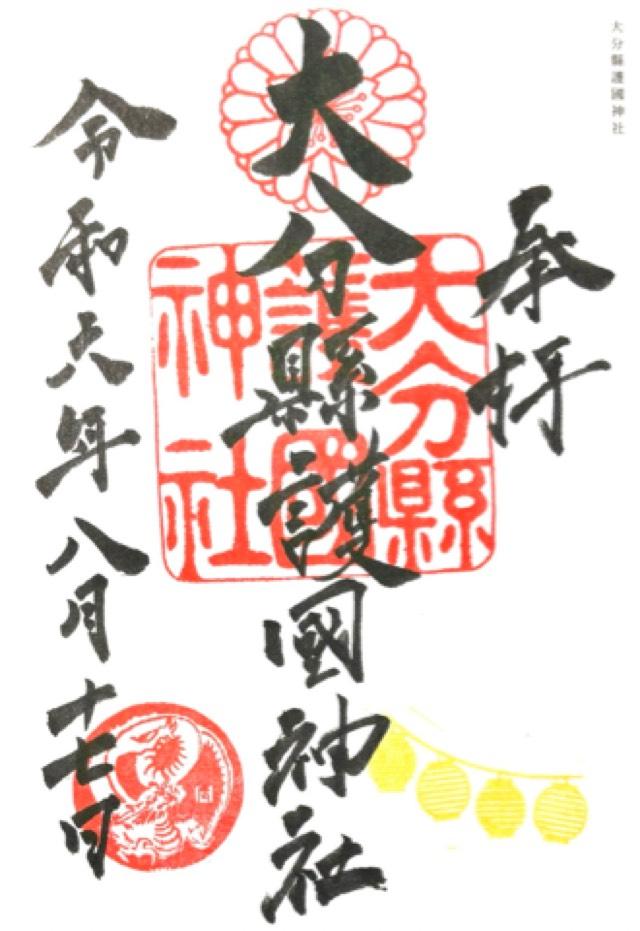 大分縣護國神社
奉拝
大分縣護國神社
大分縣
護國
神社
令和六年八月十七日